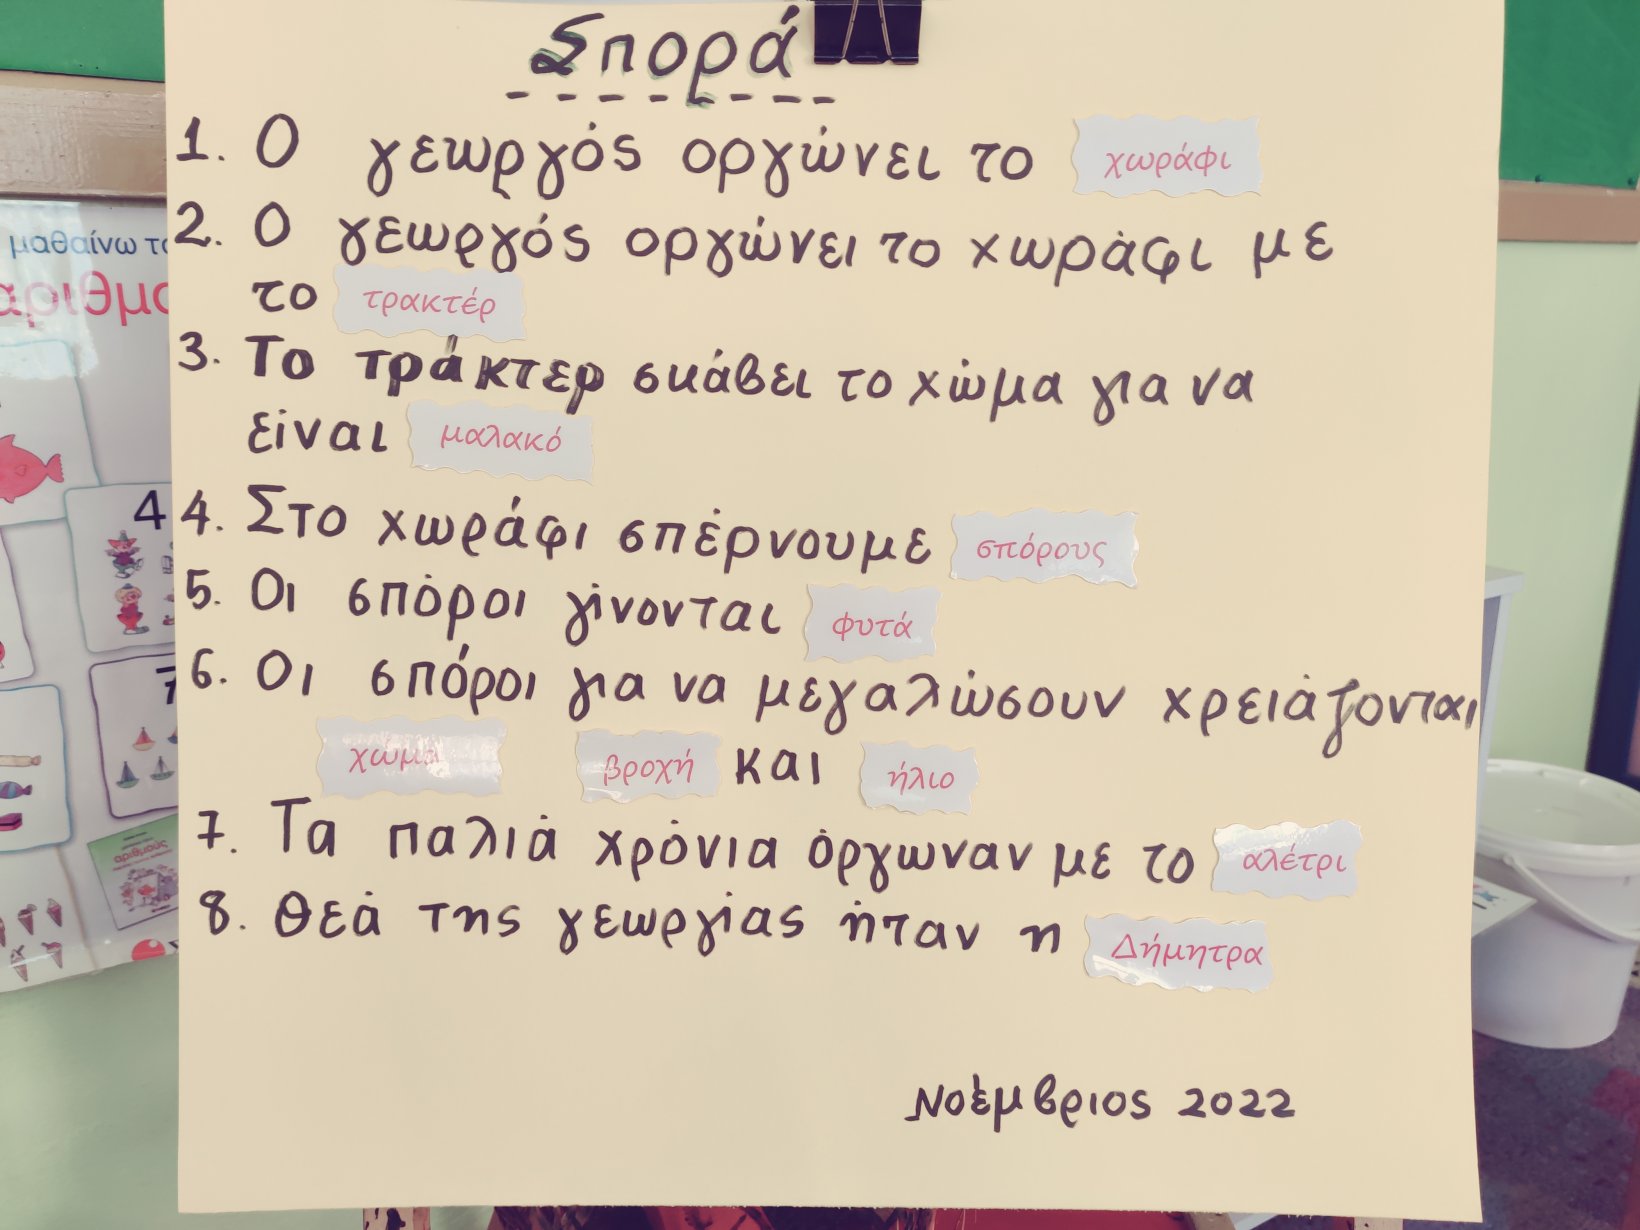 Σπορά
1. Ο γεωργός οργώνει το χωράφι
2. Ο γεωργός οργώνει το χωράφι με
το τρακτέρ
3. Το τράκτερ σκάβει το χώμα για να
είναι μαλακό
4. Στο χωράφι σπέρνουμε σπόρους
5. Οι σπόροι γίνονται φυτά
6. Οι σπόροι για να μεγαλώσουν χρειάζονται
χώμα βροχή και ήλιο
7. Τα παλιά χρόνια όργωναν με το αλέτρι
8. Θεά της γεωργίας ήταν η Δήμητρα
Νοέμβριος 2022
μαθαίνω το
αριθμο
4
7
αριθμούς